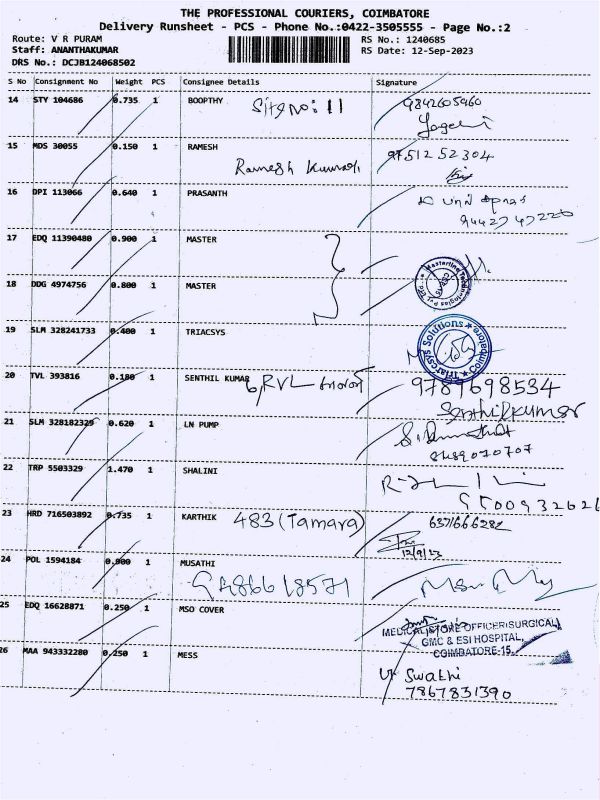 THE PROFESSIONAL COURIERS, COIMBATORE
Delivery Runsheet - PCS - Phone No.:0422-3505555 - Page No.:2
Route: V R PURAM RS No.: 1240685
Staff: ANANTHAKUMAR RS Date: 12-Sep-2023
DRS No.: DCJB124068502
S No Consignment No Weight PCS Consignee Details Signature
14 STY 104686 0.735 1 BOOPTHY Site no: 11 9842605960
15 MDS 30055 0.150 1 RAMESH 97512 52304
Ramesh Kumar
16 DPI 113066 0.640 1 PRASANTH
94427 47220
17 EDQ 11390480 0.900 1 MASTER
18 DDG 4974756 0.800 1 MASTER
19 SLM 328241733 0.400 1 TRIACSYS
Triarcsys Solutions Coimbatore
20 TVL 393816 0.180 1 SENTHIL KUMAR 6, RVL 9789698534
Senthilkumar
21 SLM 328182329 0.620 1 LN PUMP
8489070707
22 TRP 5503329 1.470 1 SHALINI
23 HRD 716503892 0.735 1 KARTHIK 483 (Tamara) 6371666282
12/9/23
24 POL 1594184 0.900 1 MUSATHI
9486618571
25 EDQ 16628871 0.250 1 MSO COVER
MEDICAL STORE OFFICER(SURGICAL)
GMC & ESI HOSPITAL,
COIMBATORE-15.
26 MAA 943332280 0.250 1 MESS
Swathi
7867831390